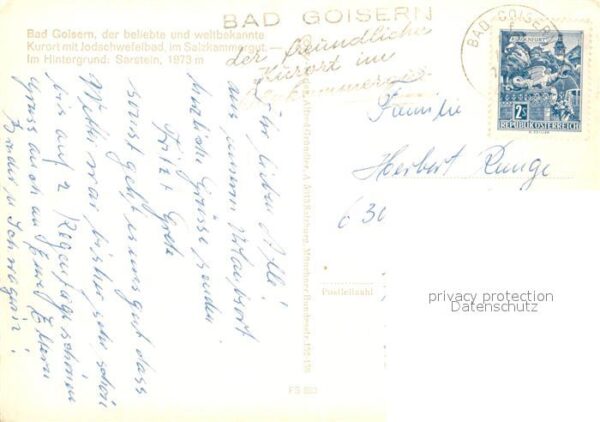 Bad Goisern, der beliebte und weltbekannte
Kurort mit Jodschwefelbad, im Salzkammergut
Im Hintergrund: Sarstein, 1973 m
BAD GOISERN
der freundliche
Kurort im
Salzkammergut
BAD GOISERN
2S
REPUBLIK ÖSTERREICH
Familie
Herbert Runge
630
Postleitzahl
privacy protection
Datenschutz
FS 883
Ihr lieben Alle!
aus unserem Urlaubsort
herzliche Grüsse senden
Fritz + Grete
sonst geht es uns gut dass
Wetter war bisher sehr schön
bis auf 2 Regentage
Gruss auch an Eure Eltern
Bruder u Schwägerin!